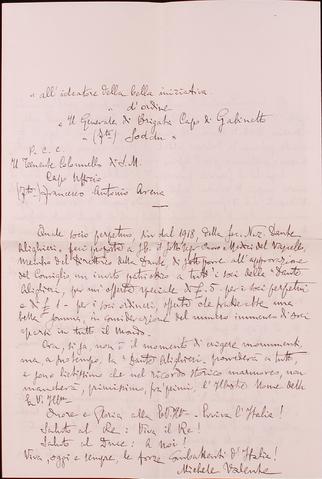 " all'ideatore della bella iniziativa.
" d'ordine
" Il Generale di Brigata Capo di Gabinetto
" (fto) Soddu "
P. C. C.
Il Tenente Colonnello di S.M.
Capo Ufficio
(fto) Francesco Antonio Arena
Quale socio perpetuo, fin dal 1918, della Soc. Naz. Dante
Alighieri, feci proposta a S.E. il
membro del Direttorio della Dante di sottoporre all'approvazione
del Consiglio un invito patriottico a tutti i soci della "Dante
Alighieri", per un'offerta speciale di £. 5 - per i soci perpetui
e di £ 1 - per i soci ordinari, offerta che frutterebbe una
bella somma, in considerazione del numero immenso di soci
sparsi in tutto il Mondo.
Ora, si sa, non è il momento di erigere monumenti,
ma, a suo tempo, la "Dante Alighieri" provvederà a tutti,
e sono lietissimo che nel ricordo storico marmoreo, non
mancherà, primissimo, fra i primi, l'Illustre Nome della
E.V. Ill.ma
Onore e Gloria alla - Evviva l'Italia!
Saluto al Re: Viva il Re!
Saluto al Duce: A noi!
Viva, oggi e sempre, le forze Combattenti d'Italia!
Michele Valente